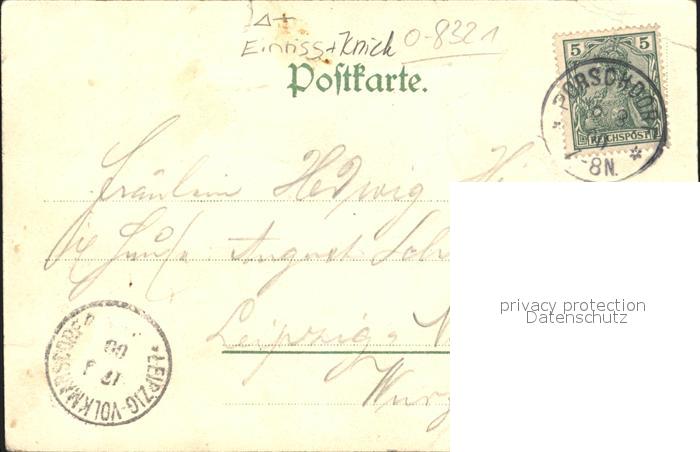 Einriss + Knick 0-8321
Postkarte.
5 5
REICHSPOST
PORSCHDORF
8N.
Fräulein Hedwig
August
Leipzig-
Wurz
LEIPZIG-VOLKMARSDORF
privacy protection
Datenschutz